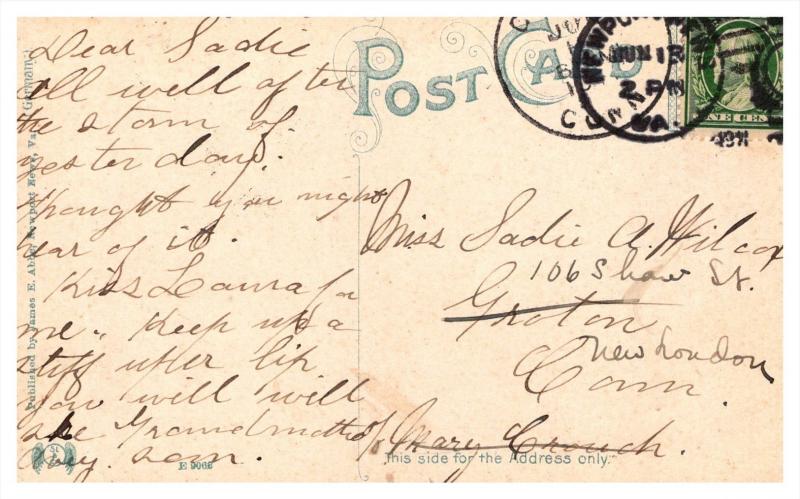 Dear Sadie
All well after
the storm of
yesterday.
thought you might
hear of it.
Kiss Laura for
me. Keep up a
stiff upper lip
you will will
see Grandmother
very soon.
POST CARD
NEWPORT NEWS
JUN 13
2 PM
VA.
CONN
ONE CENT
Miss Sadie A. Wilcox
106 Shaw St.
Groton
New London
Conn.
c/o Mary Crouch.
This side for the Address only.
E 9068
Published by James E. Abbe, Newport News, Va. Germany.